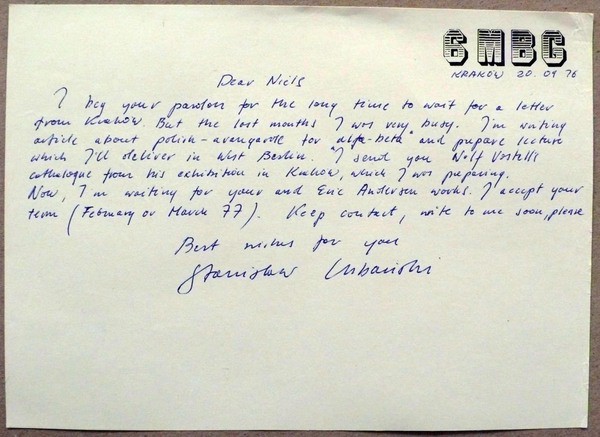 6MBC
KRAKÓW 20.09 76
Dear Niels
I beg your pardon for the long time to wait for a letter
from Kraków. But the last months I was very busy. I'm writing
article about polish-avangarde for "alfa-beta" and prepare lecture
which I'll deliver in West Berlin. I send you Wolf Vostells
cathalogue from his exhibition in Kraków, which I was preparing.
Now, I'm waiting for your and Eric Andersen works. I accept your
term (February or March 77). Keep contact, write to me soon, please
Best wishes for you
Stanisław Urbański